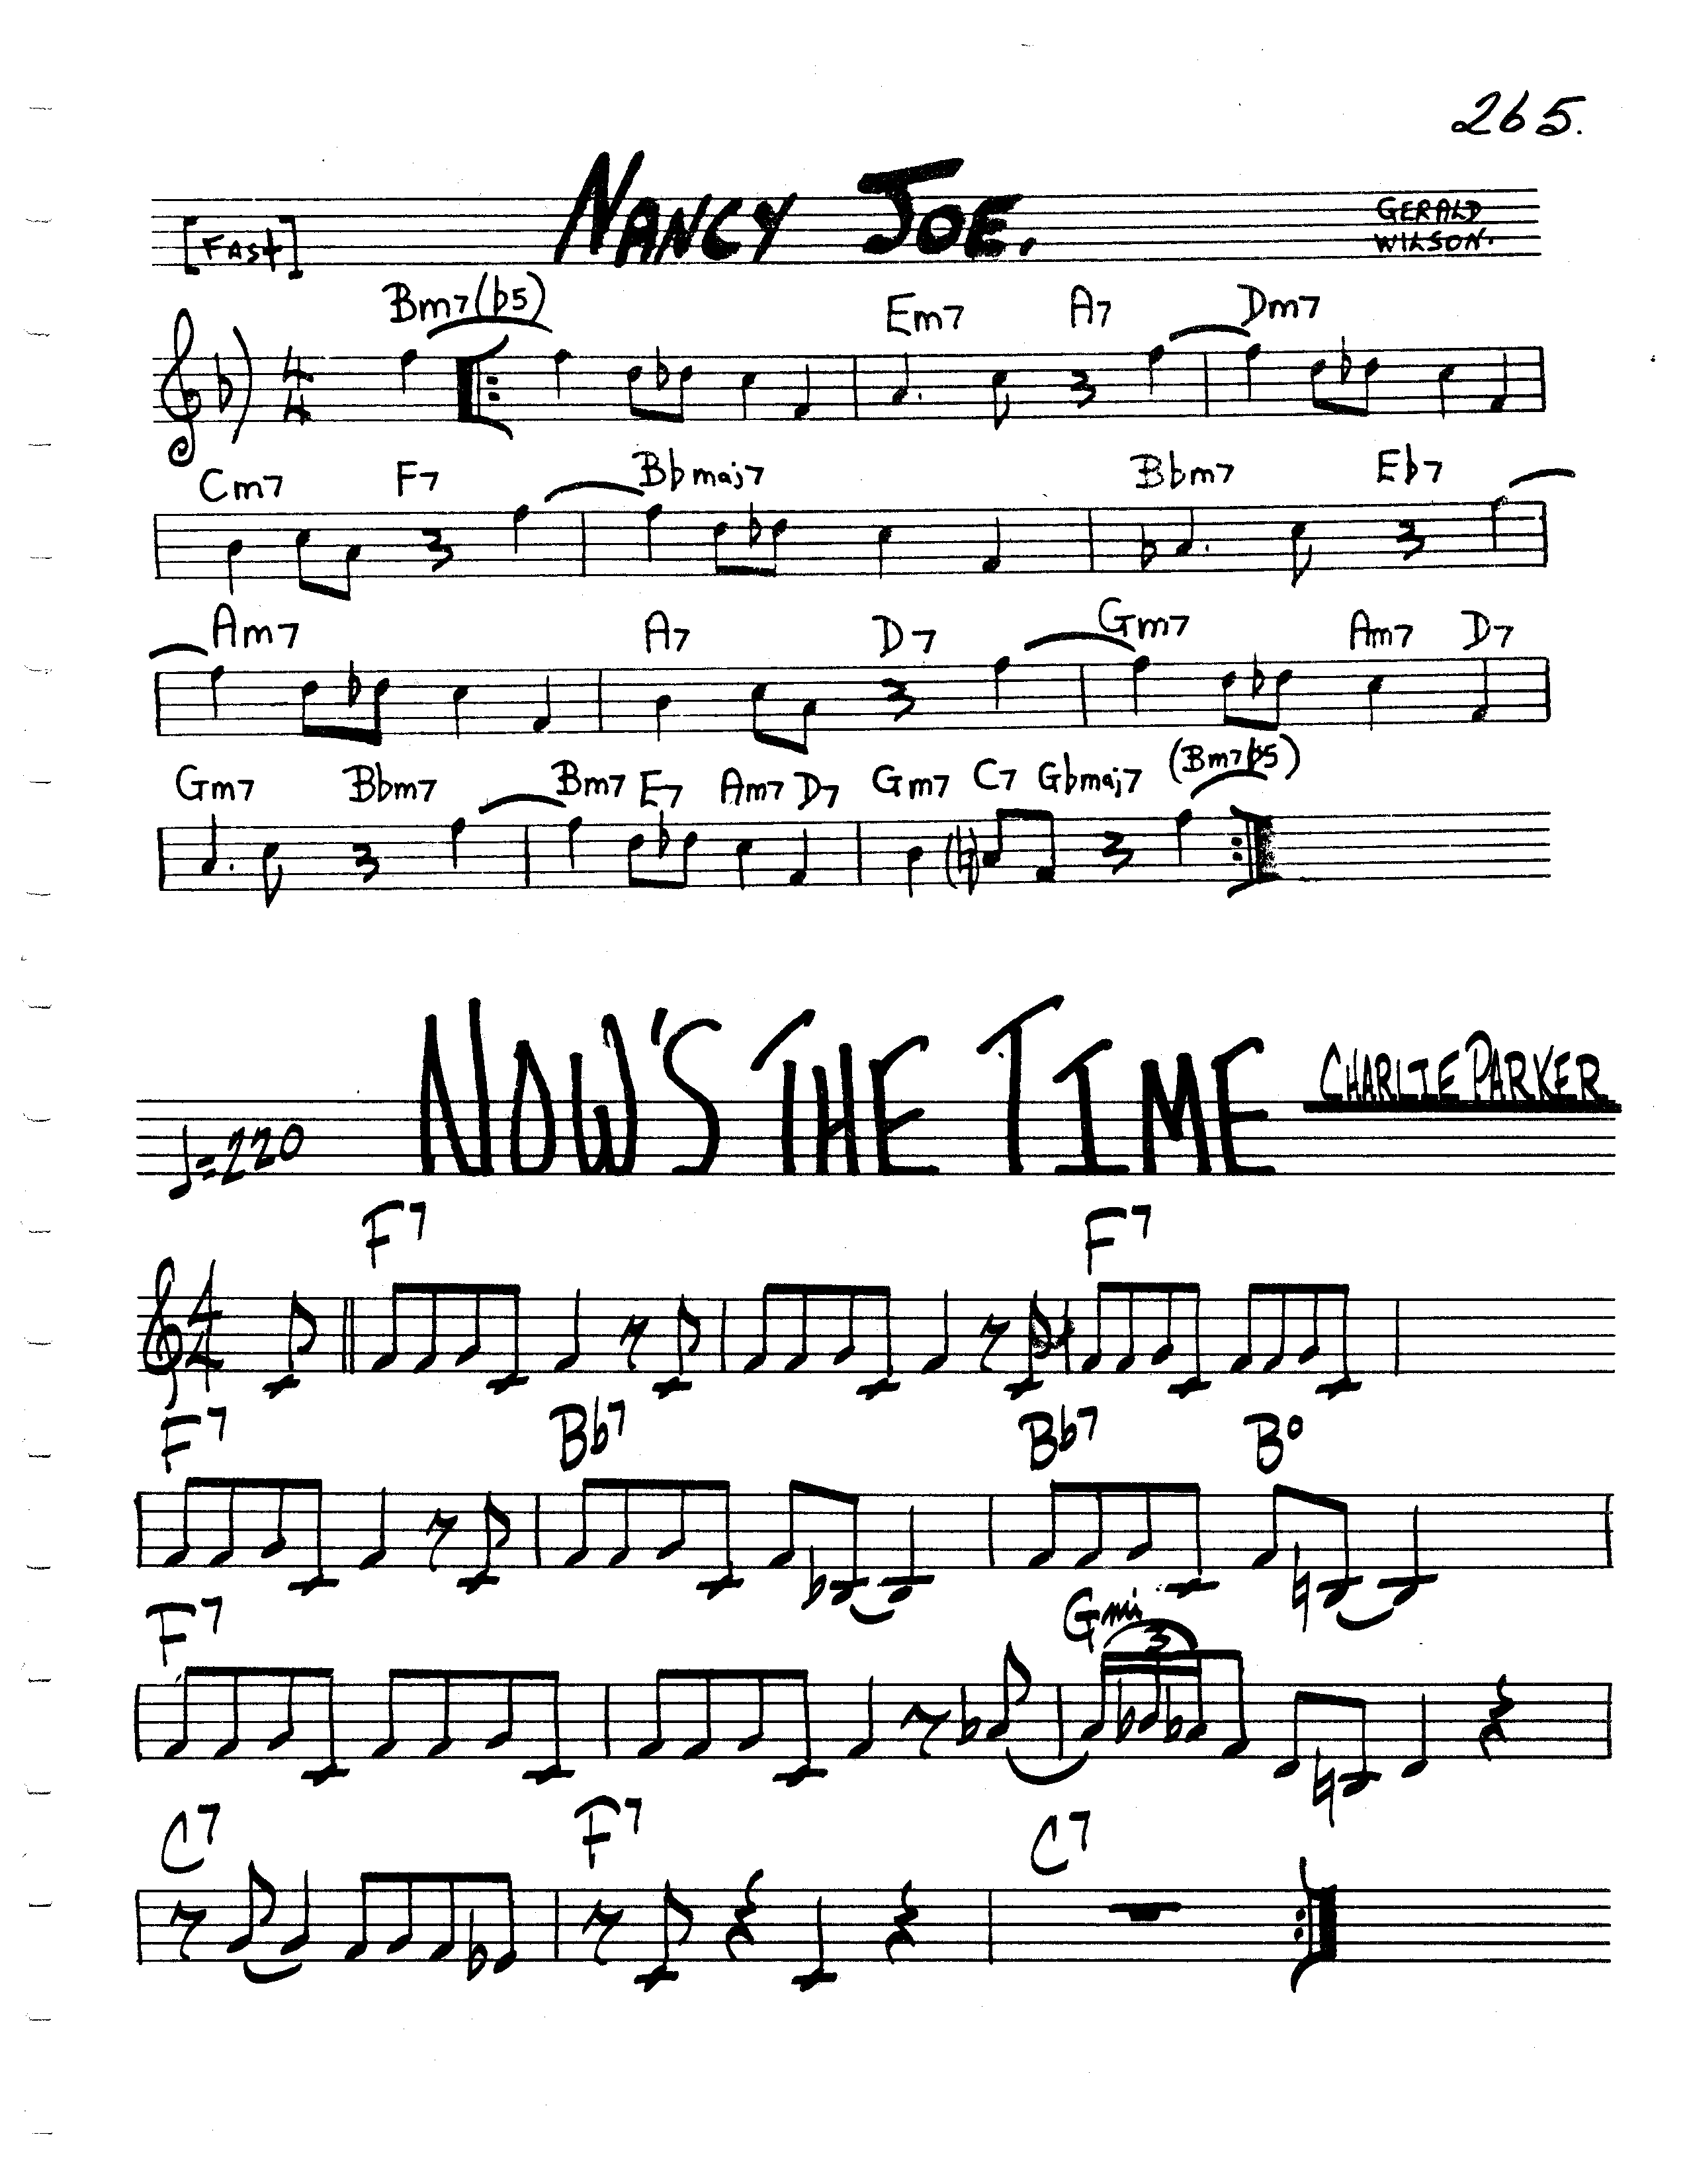 265.
NANCY JOE.
[FAST]
GERALD
WILSON.
Bm7(b5) Em7 A7 Dm7
4
4
Cm7 F7 Bbmaj7 Bbm7 Eb7
Am7 A7 D7 Gm7 Am7 D7
Gm7 Bbm7 Bm7 E7 Am7 D7 Gm7 C7 Gbmaj7 (Bm7b5)
NOW'S THE TIME
CHARLIE PARKER
♩=220
F7 F7
4
4
F7 Bb7 Bb7 B°
F7 Gmi
3
C7 F7 C7